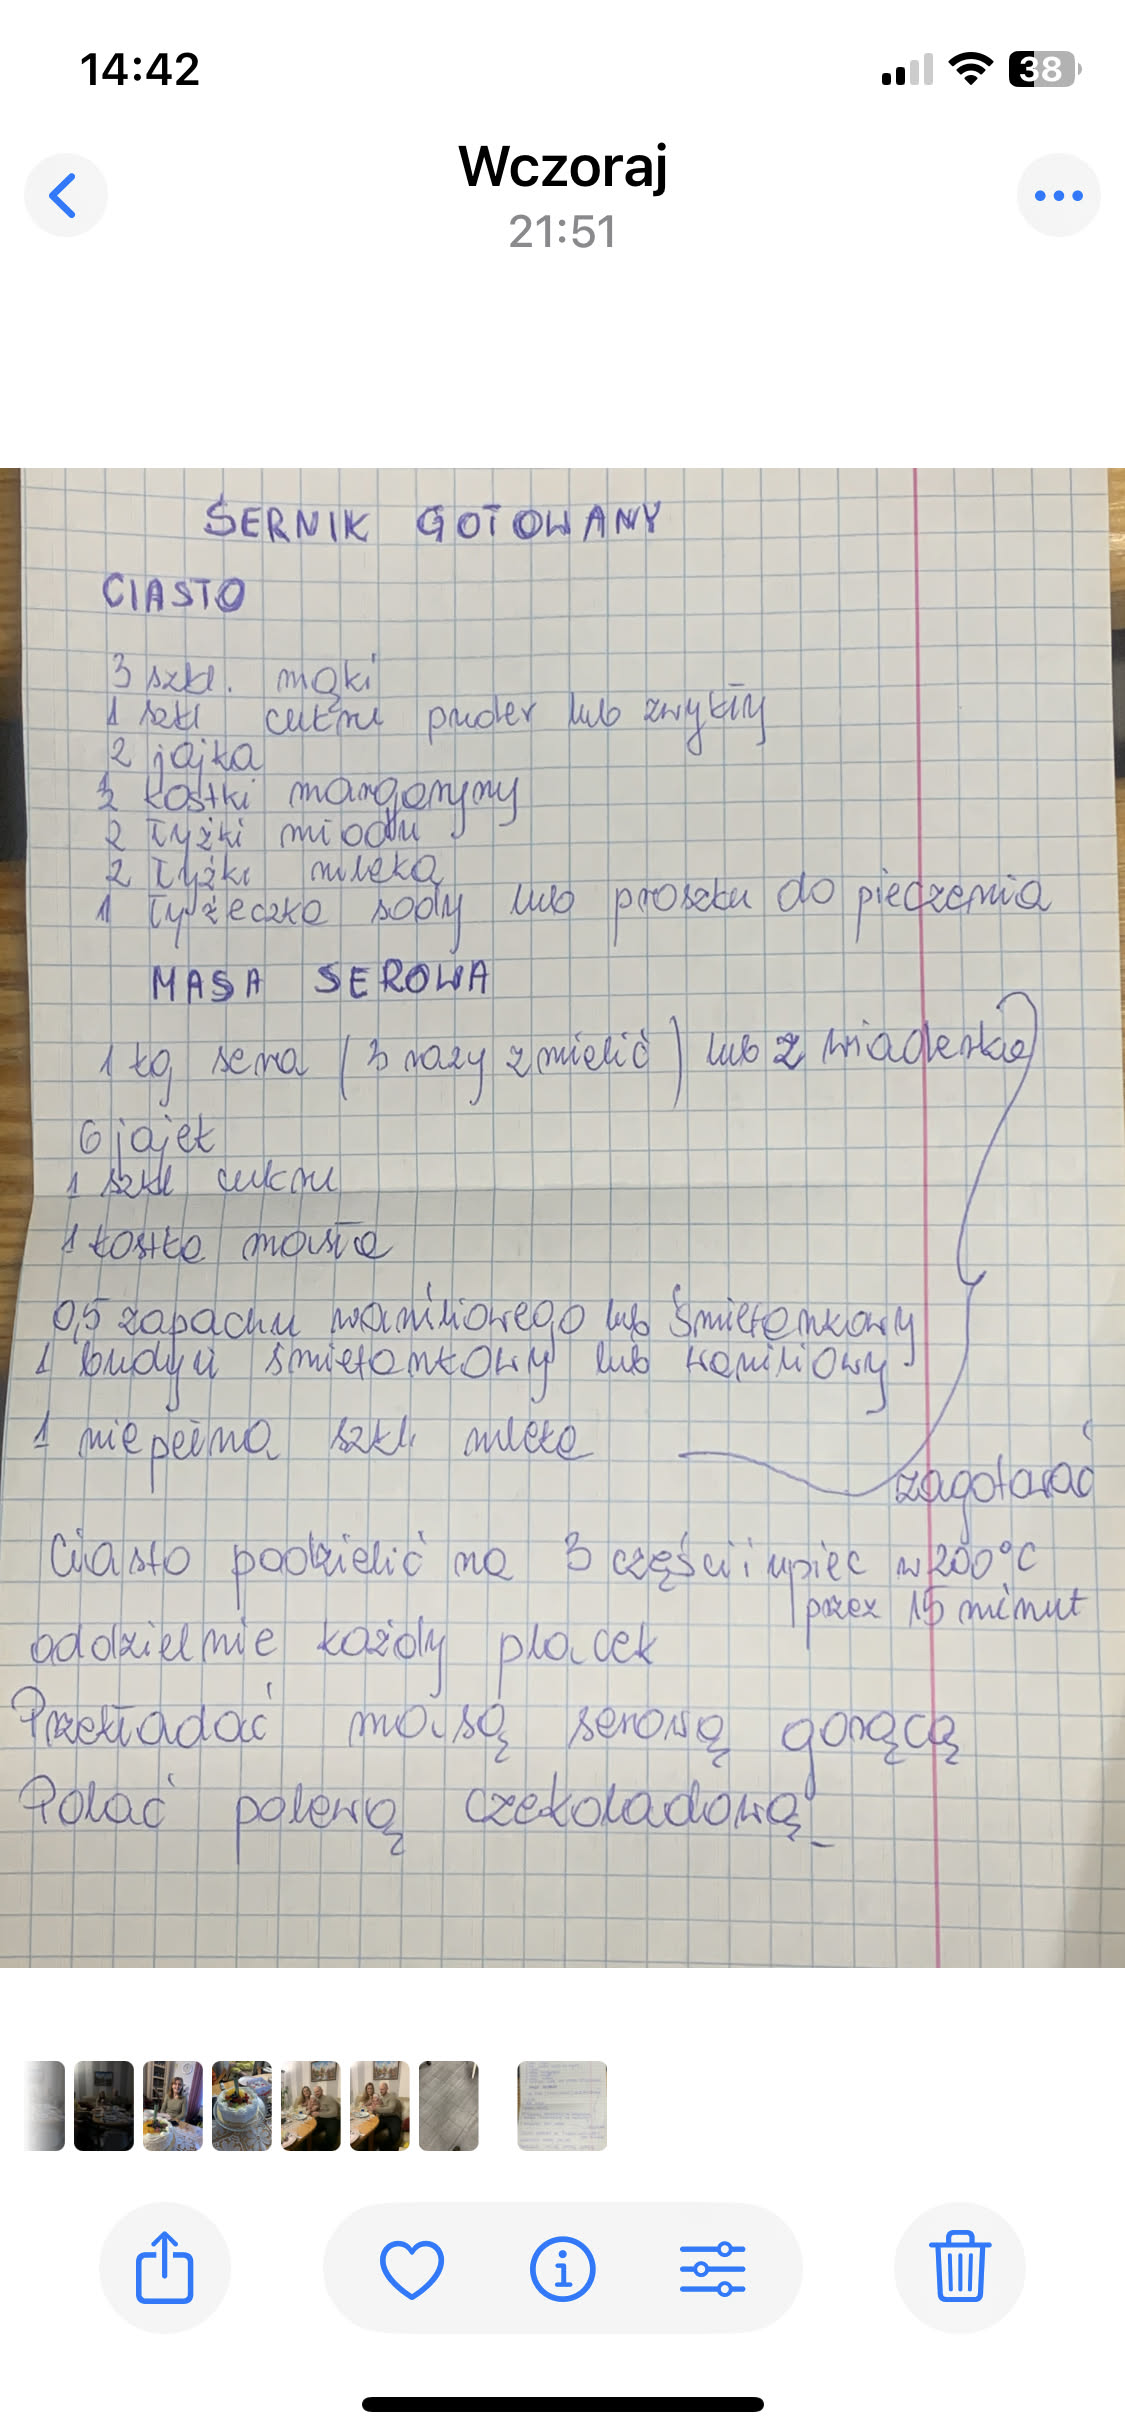 14:42
38
Wczoraj
21:51
SERNIK GOTOWANY
CIASTO
3 szkl. mąki
1 szkl cukru puder lub zwykły
2 jajka
kostki margaryny
2 łyżki miodu
2 łyżki mleka
1 łyżeczka sody lub proszku do pieczenia
MASA SEROWA
1 kg sera (3 razy zmielić) lub z wiaderka
6 jajek
1 szkl cukru
1 kostka masła
0,5 zapachu waniliowego lub śmietankowy
1 budyń śmietankowy lub waniliowy
1 niepełna szkl. mleka
zagotować
Ciasto podzielić na 3 części i upiec w 200°C
przez 15 minut
oddzielnie każdy placek
Przekładać masą serową gorącą
Polać polewą czekoladową